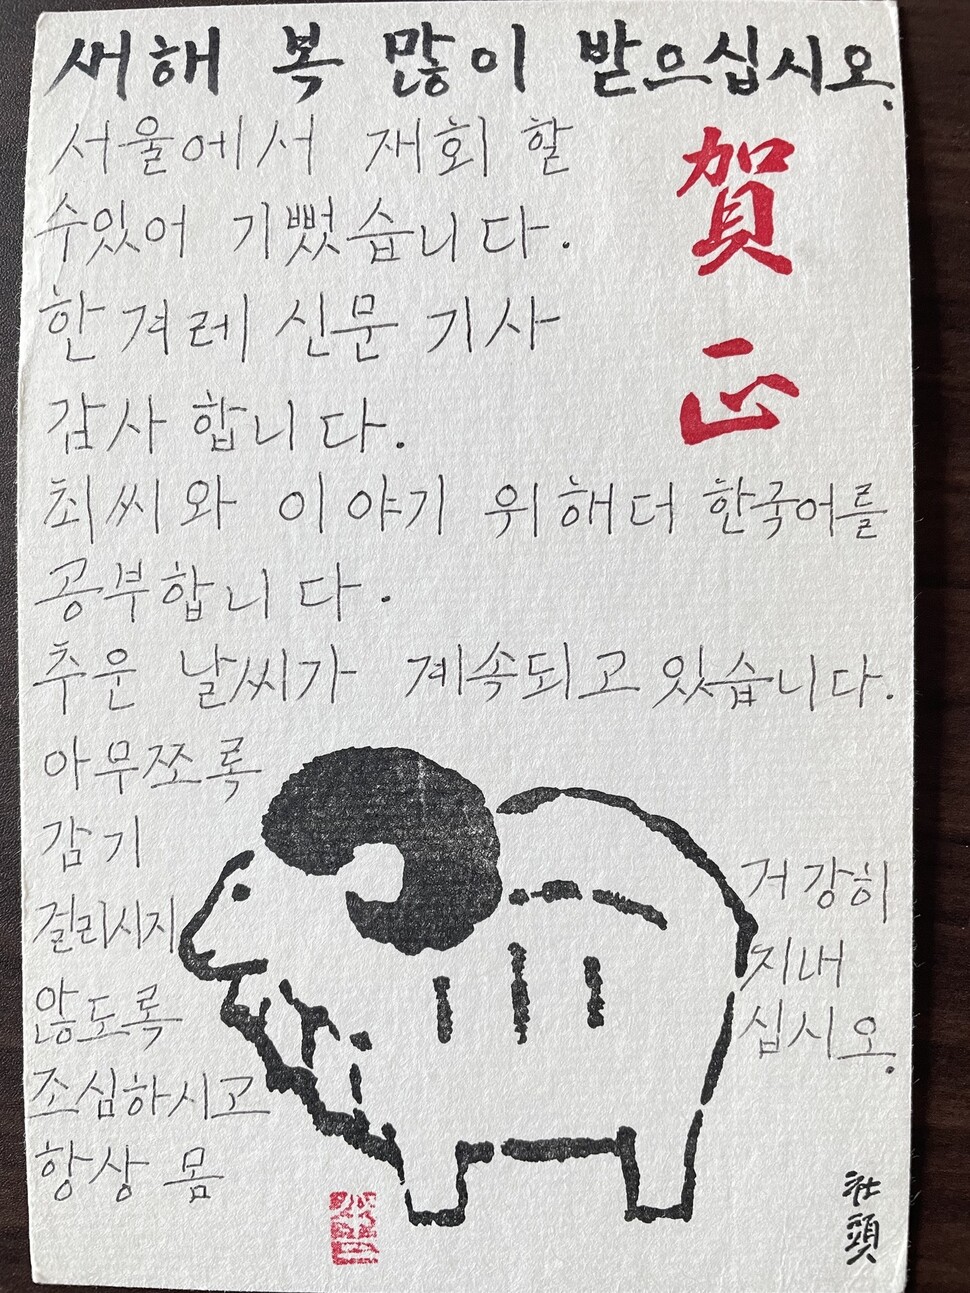 새해 복 많이 받으십시오.
賀正
서울에서 재회 할
수있어 기뻤습니다.
한겨레 신문 기사
감사 합니다.
최씨와 이야기 위해더 한국어를
공부합니다.
추운 날씨가 계속되고 있습니다.
아무쪼록
감기
걸리시지
않도록
조심하시고
항상 몸
거강히
지내
십시오.
社頭